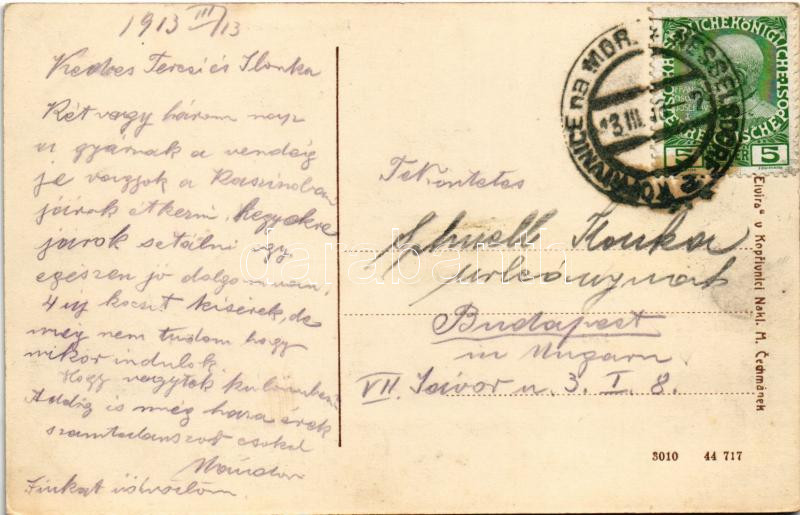 1913 III/13
Kedves Tercsi és Ilonka
Két vagy három nap
a gyárnak a vendég
je vagyok a Kaszinoban
járok étkezni, hegyekre
járok sétálni igy
egészen jó dolgom van,
4 uj kocsit kisérek, de
még nem tudom hogy
mikor indulok
Hogy vagytok különben?
Addig is még haza érek
számtalanszor csokol
Nándor
üdvözlöm
Tekintetes
Schnell Ilonka
urleánynak
Budapest
in Ungarn
VII. u. 3. I. 8.
NESSELSDORF
KOPŘIVNICE na MOR.
13 III
5
darabanth
Elvira" v Kopřivnici Nakl. M. Čechmánek
3010 44 717